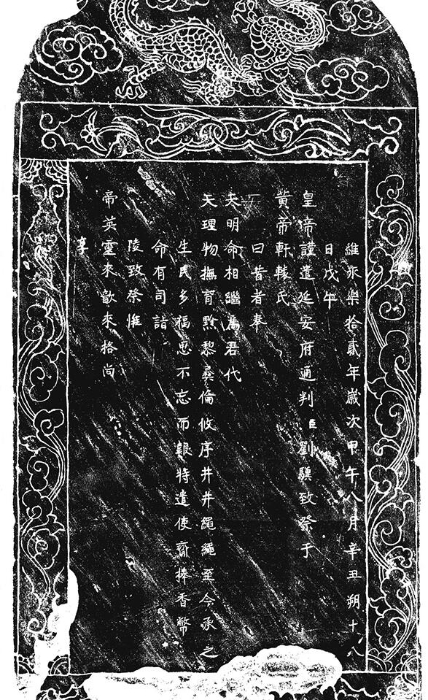 維永樂拾貳年歲次甲午八月辛丑朔十八
日戊午
皇帝謹遣延安府通判臣劉驥致祭于
黃帝軒轅氏
曰昔者奉
天明命相繼為君代
天理物撫育黔黎彝倫攸序井井繩繩至今承之
生民多福思不忘而報特遣使齎捧香幣
命有司詣
陵致祭惟
帝英靈來歆來格尚
享